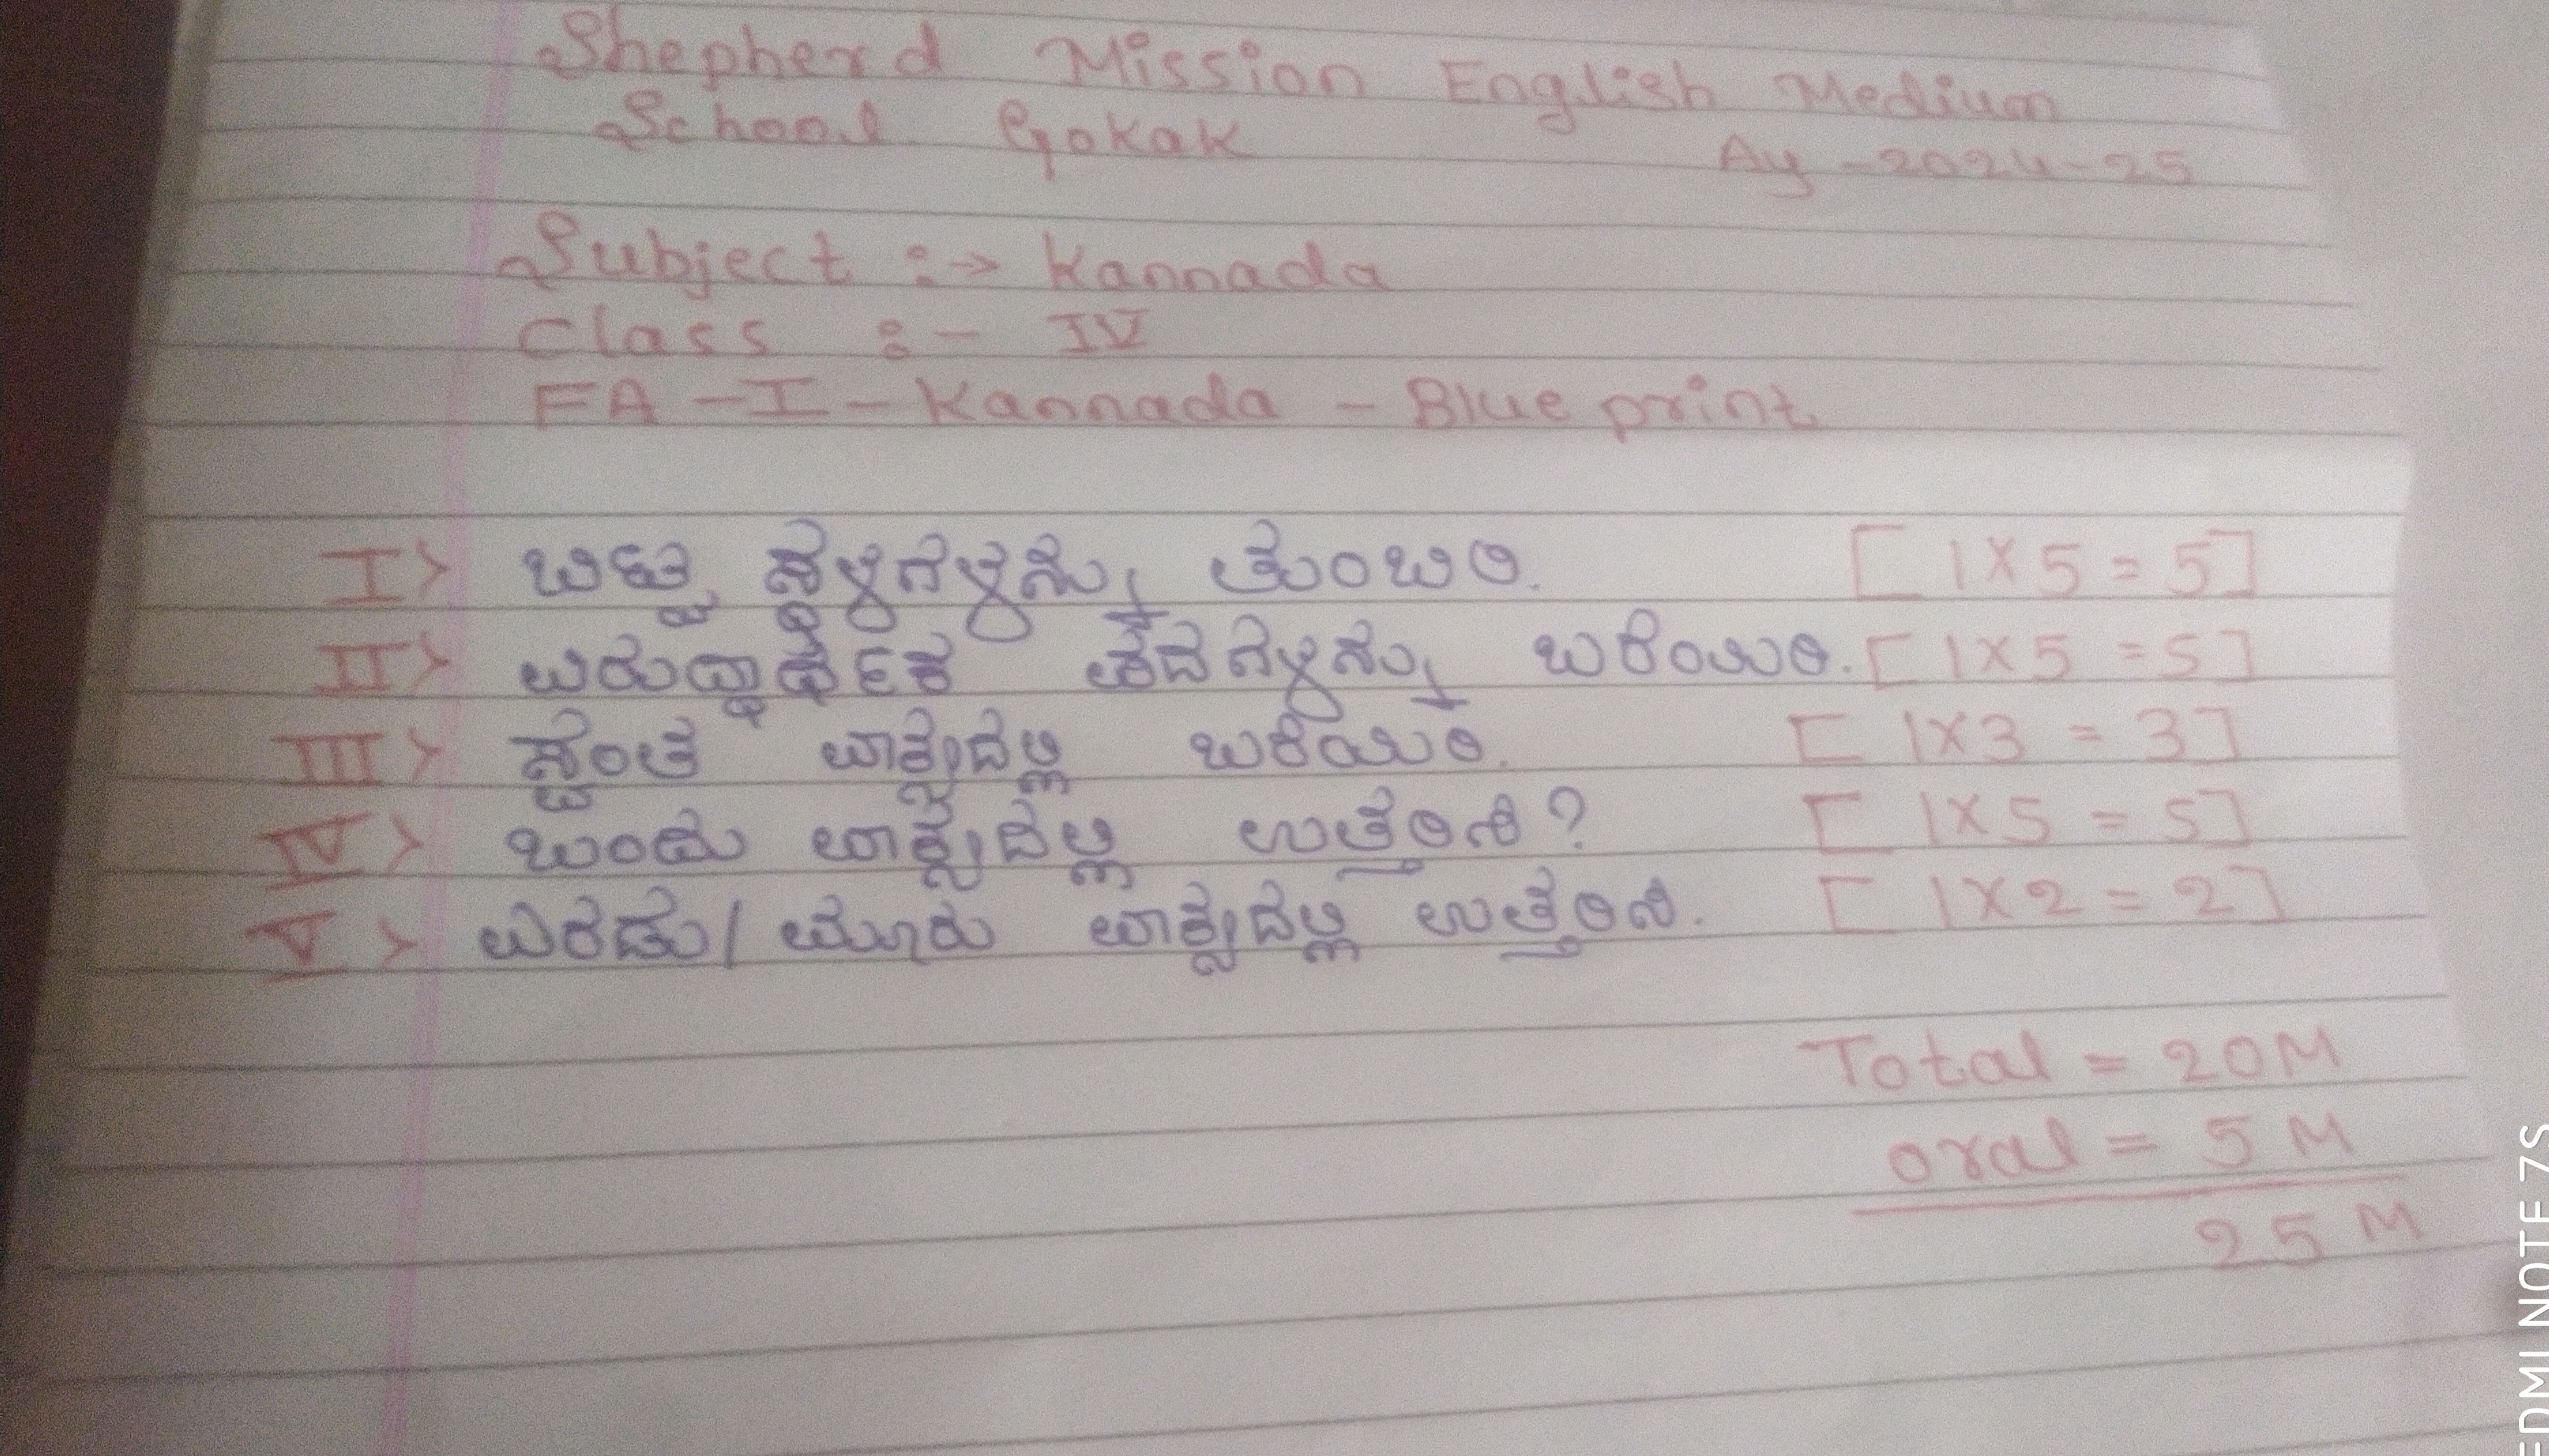 Shepherd Mission English Medium
School Gokak Ay - 2024-25
Subject :-> Kannada
Class :- IV
FA - I - Kannada - Blue print
I> ಬಿಟ್ಟ ಸ್ಥಳಗಳನ್ನು ತುಂಬಿರಿ. [1X5=5]
II> ವಿರುದ್ಧಾರ್ಥಕ ಪದಗಳನ್ನು ಬರೆಯಿರಿ. [1X5=5]
III> ಸ್ವಂತ ವಾಕ್ಯದಲ್ಲಿ ಬರೆಯಿರಿ. [1X3=3]
IV> ಒಂದು ವಾಕ್ಯದಲ್ಲಿ ಉತ್ತರಿಸಿ? [1X5=5]
V> ಎರಡು/ ಮೂರು ವಾಕ್ಯದಲ್ಲಿ ಉತ್ತರಿಸಿ. [1X2=2]
Total = 20M
oral = 5M
25M
EDMI NOTE 7S